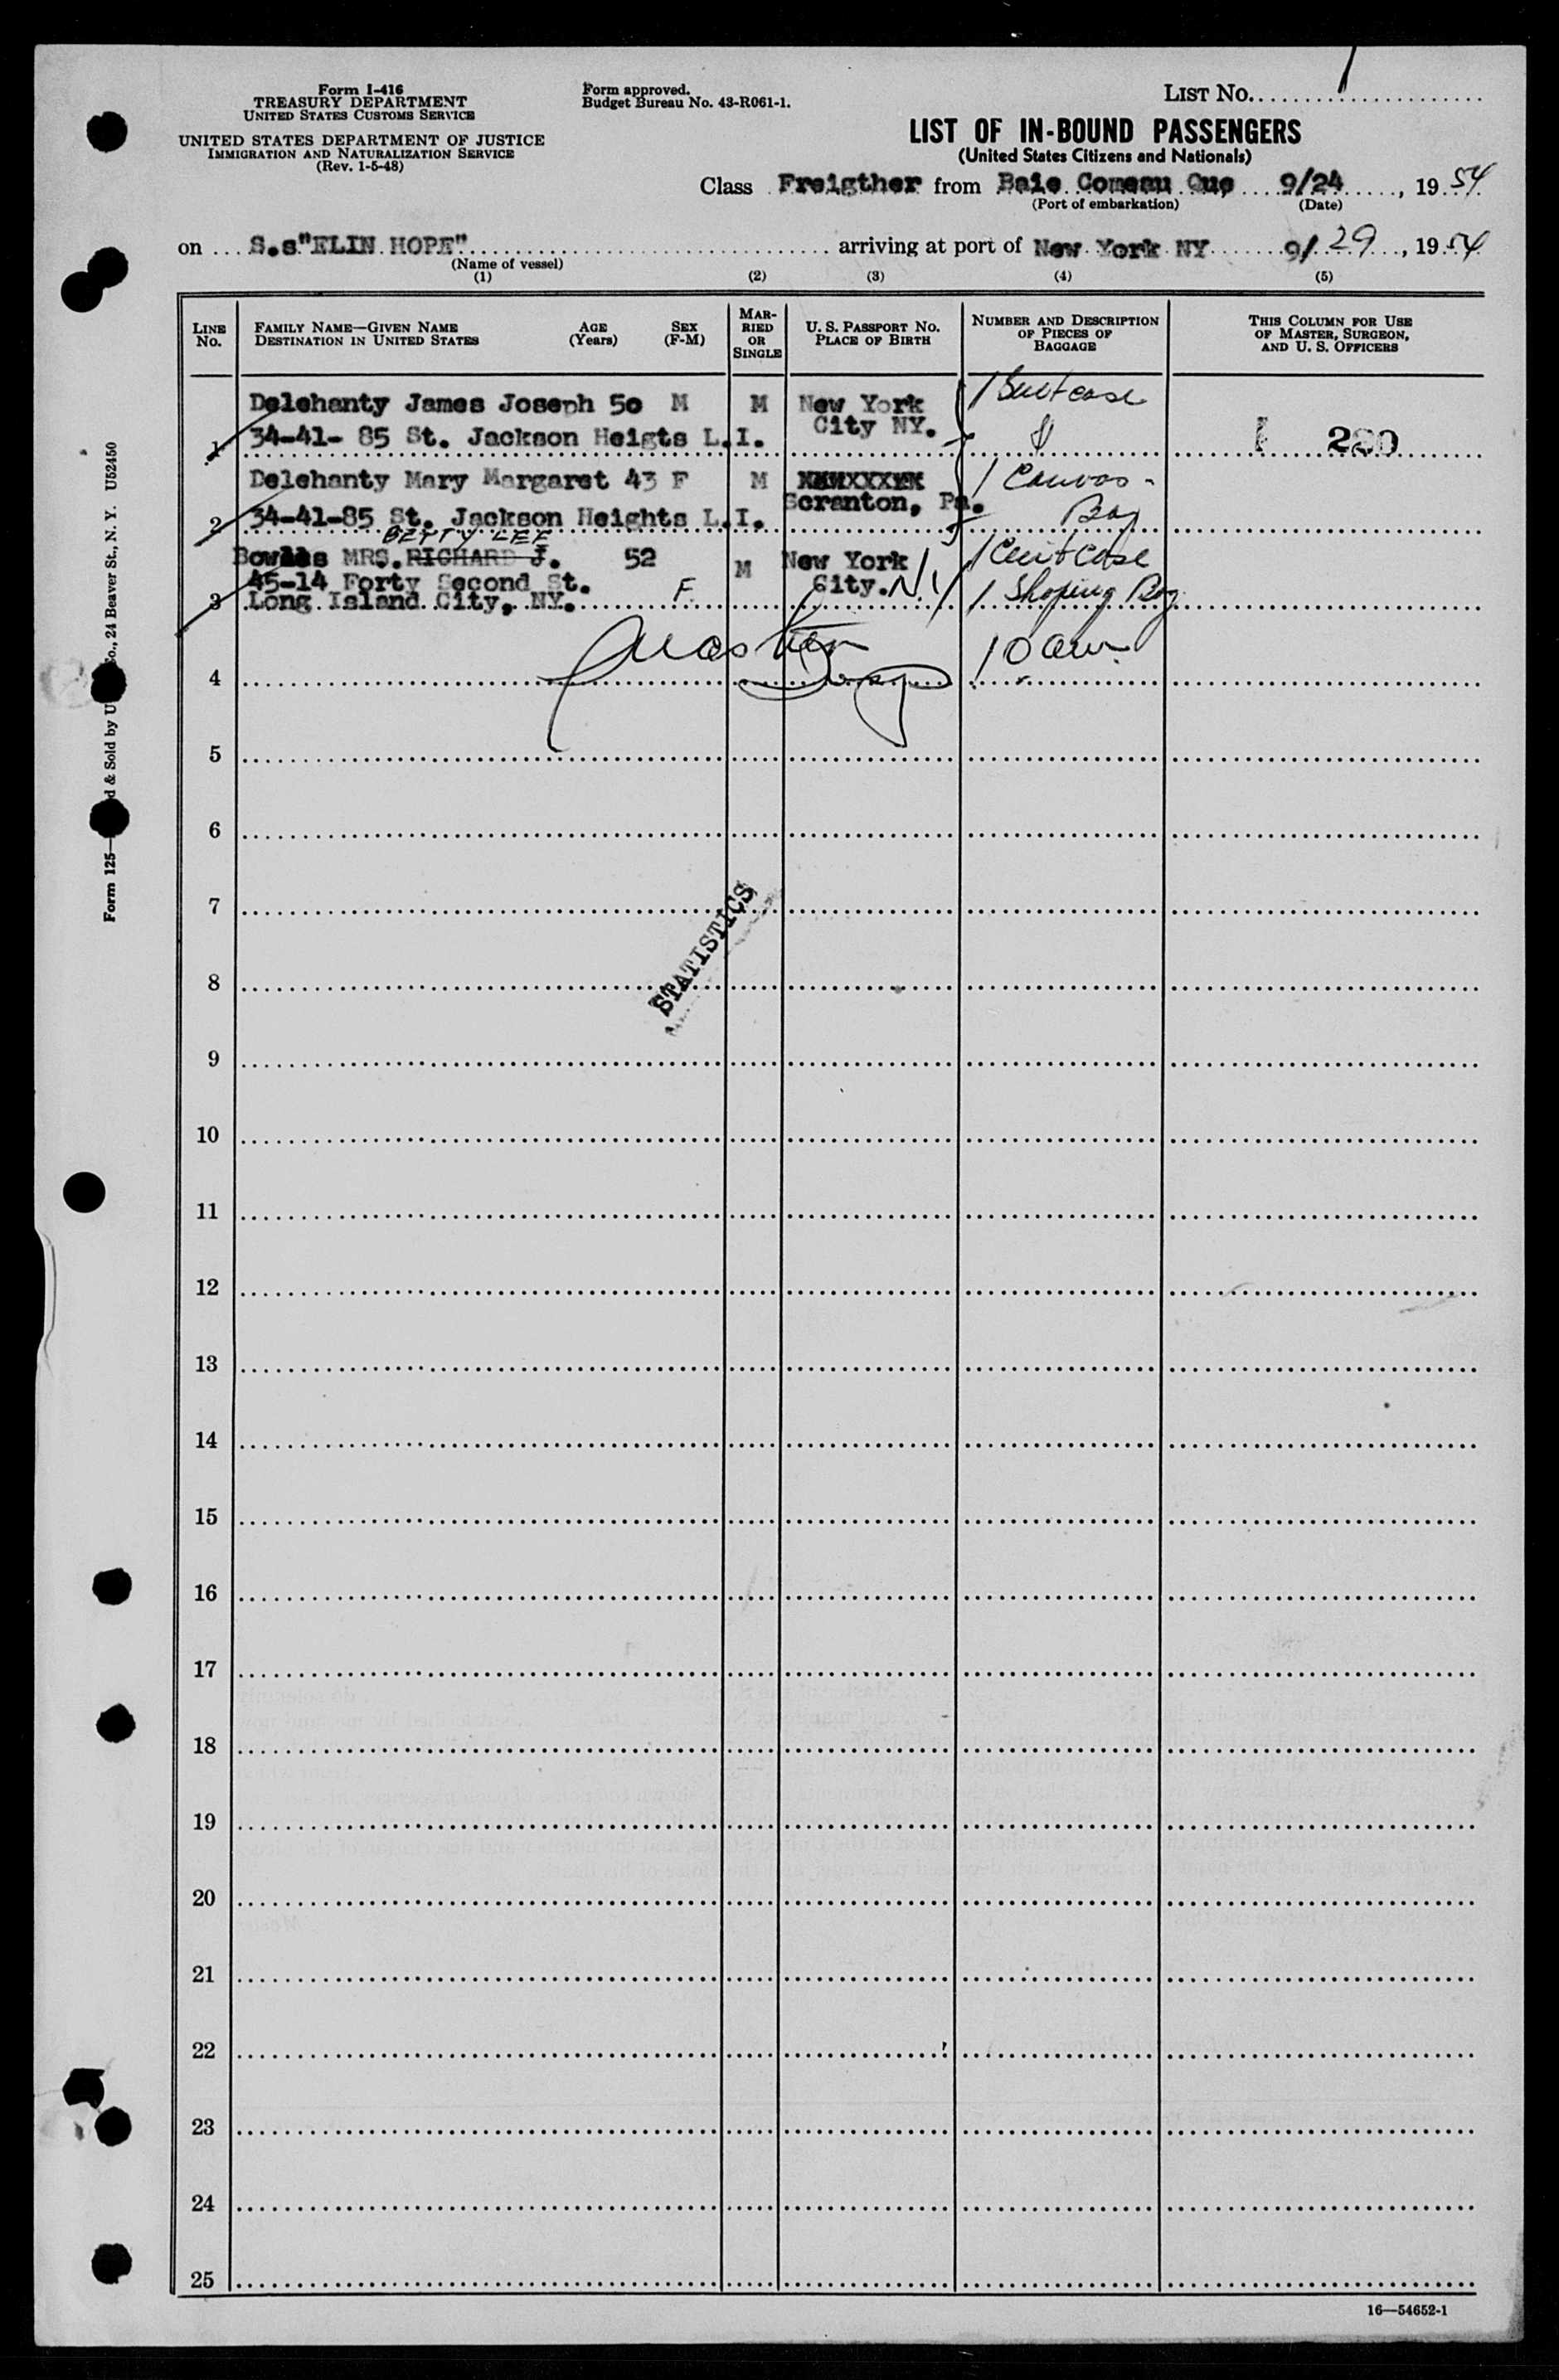 Form I-416
TREASURY DEPARTMENT
UNITED STATES CUSTOMS SERVICE
UNITED STATES DEPARTMENT OF JUSTICE
IMMIGRATION AND NATURALIZATION SERVICE
(Rev. 1-5-48)
Form approved.
Budget Bureau No. 43-R061-1.
LIST No. 1
LIST OF IN-BOUND PASSENGERS
(United States Citizens and Nationals)
Class Freigther from Baie Comeau Que 9/24, 1954
(Port of embarkation) (Date)
on S.s"ELIN HOPE" arriving at port of New York NY 9/29, 1954
(Name of vessel)
(1) (2) (3) (4) (5)
LINE No.
FAMILY NAME—GIVEN NAME
DESTINATION IN UNITED STATES
AGE (Years)
SEX (F-M)
MARRIED OR SINGLE
U. S. PASSPORT No.
PLACE OF BIRTH
NUMBER AND DESCRIPTION
OF PIECES OF
BAGGAGE
THIS COLUMN FOR USE
OF MASTER, SURGEON,
AND U. S. OFFICERS
Delehanty James Joseph 50 M M New York 1 Suitcase
City NY.
1 34-41- 85 St. Jackson Heigts L.I. 280
Delehanty Mary Margaret 43 F M 1 Canvas
Scranton, Pa.
2 34-41-85 St. Jackson Heights L.I. Bag
BETTY LEE
Bowles MRS. RICHARD J. 52 M New York 1 Suitcase
45-14 Forty Second St. City. N.Y
3 Long Island City, NY. F 1 Shoping Bag
4
5
6
7
STATISTICS
8
9
10
11
12
13
14
15
16
17
18
19
20
21
22
23
24
25
16—54652-1
Form 125— d & Sold by U Co., 24 Beaver St., N. Y. U52450